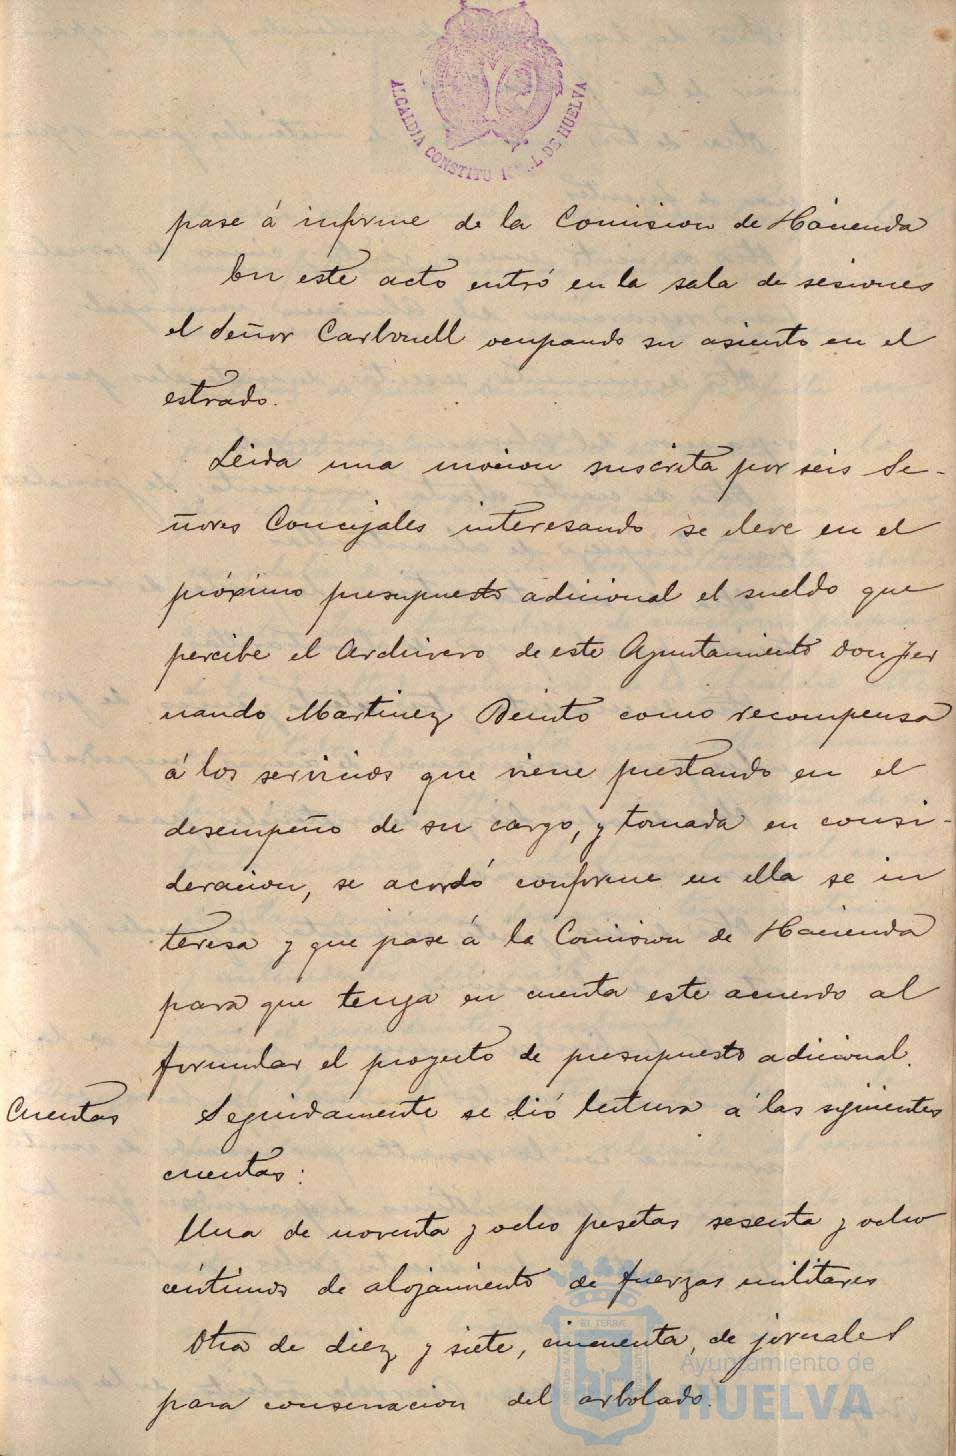 ALCALDIA CONSTITU L DE HUELVA
pase á informe de la Comision de Hacienda
En este acto entró en la sala de sesiones
el Señor Carbonell ocupando su asiento en el
estrado.
Leida una mocion suscrita por seis Se-
ñores Concejales interesando se eleve en el
próximo presupuesto adicional el sueldo que
percibe el Archivero de este Ayuntamiento Don Fer
nando Martinez como recompensa
á los servicios que viene prestando en el
desempeño de su cargo, y tomada en consi-
deracion, se acordó conforme en ella se in
teresa y que pase á la Comision de Hacienda
para que tenga en cuenta este acuerdo al
formular el proyecto de presupuesto adicional.
Cuentas
Seguidamente se dió lectura á las siguientes
cuentas:
Una de noventa y ocho pesetas sesenta y ocho
céntimos de alojamiento de fuerzas militares
Otra de diez y siete, cincuenta, de jornales
para conservacion del arbolado.
Ayuntamiento de
HUELVA